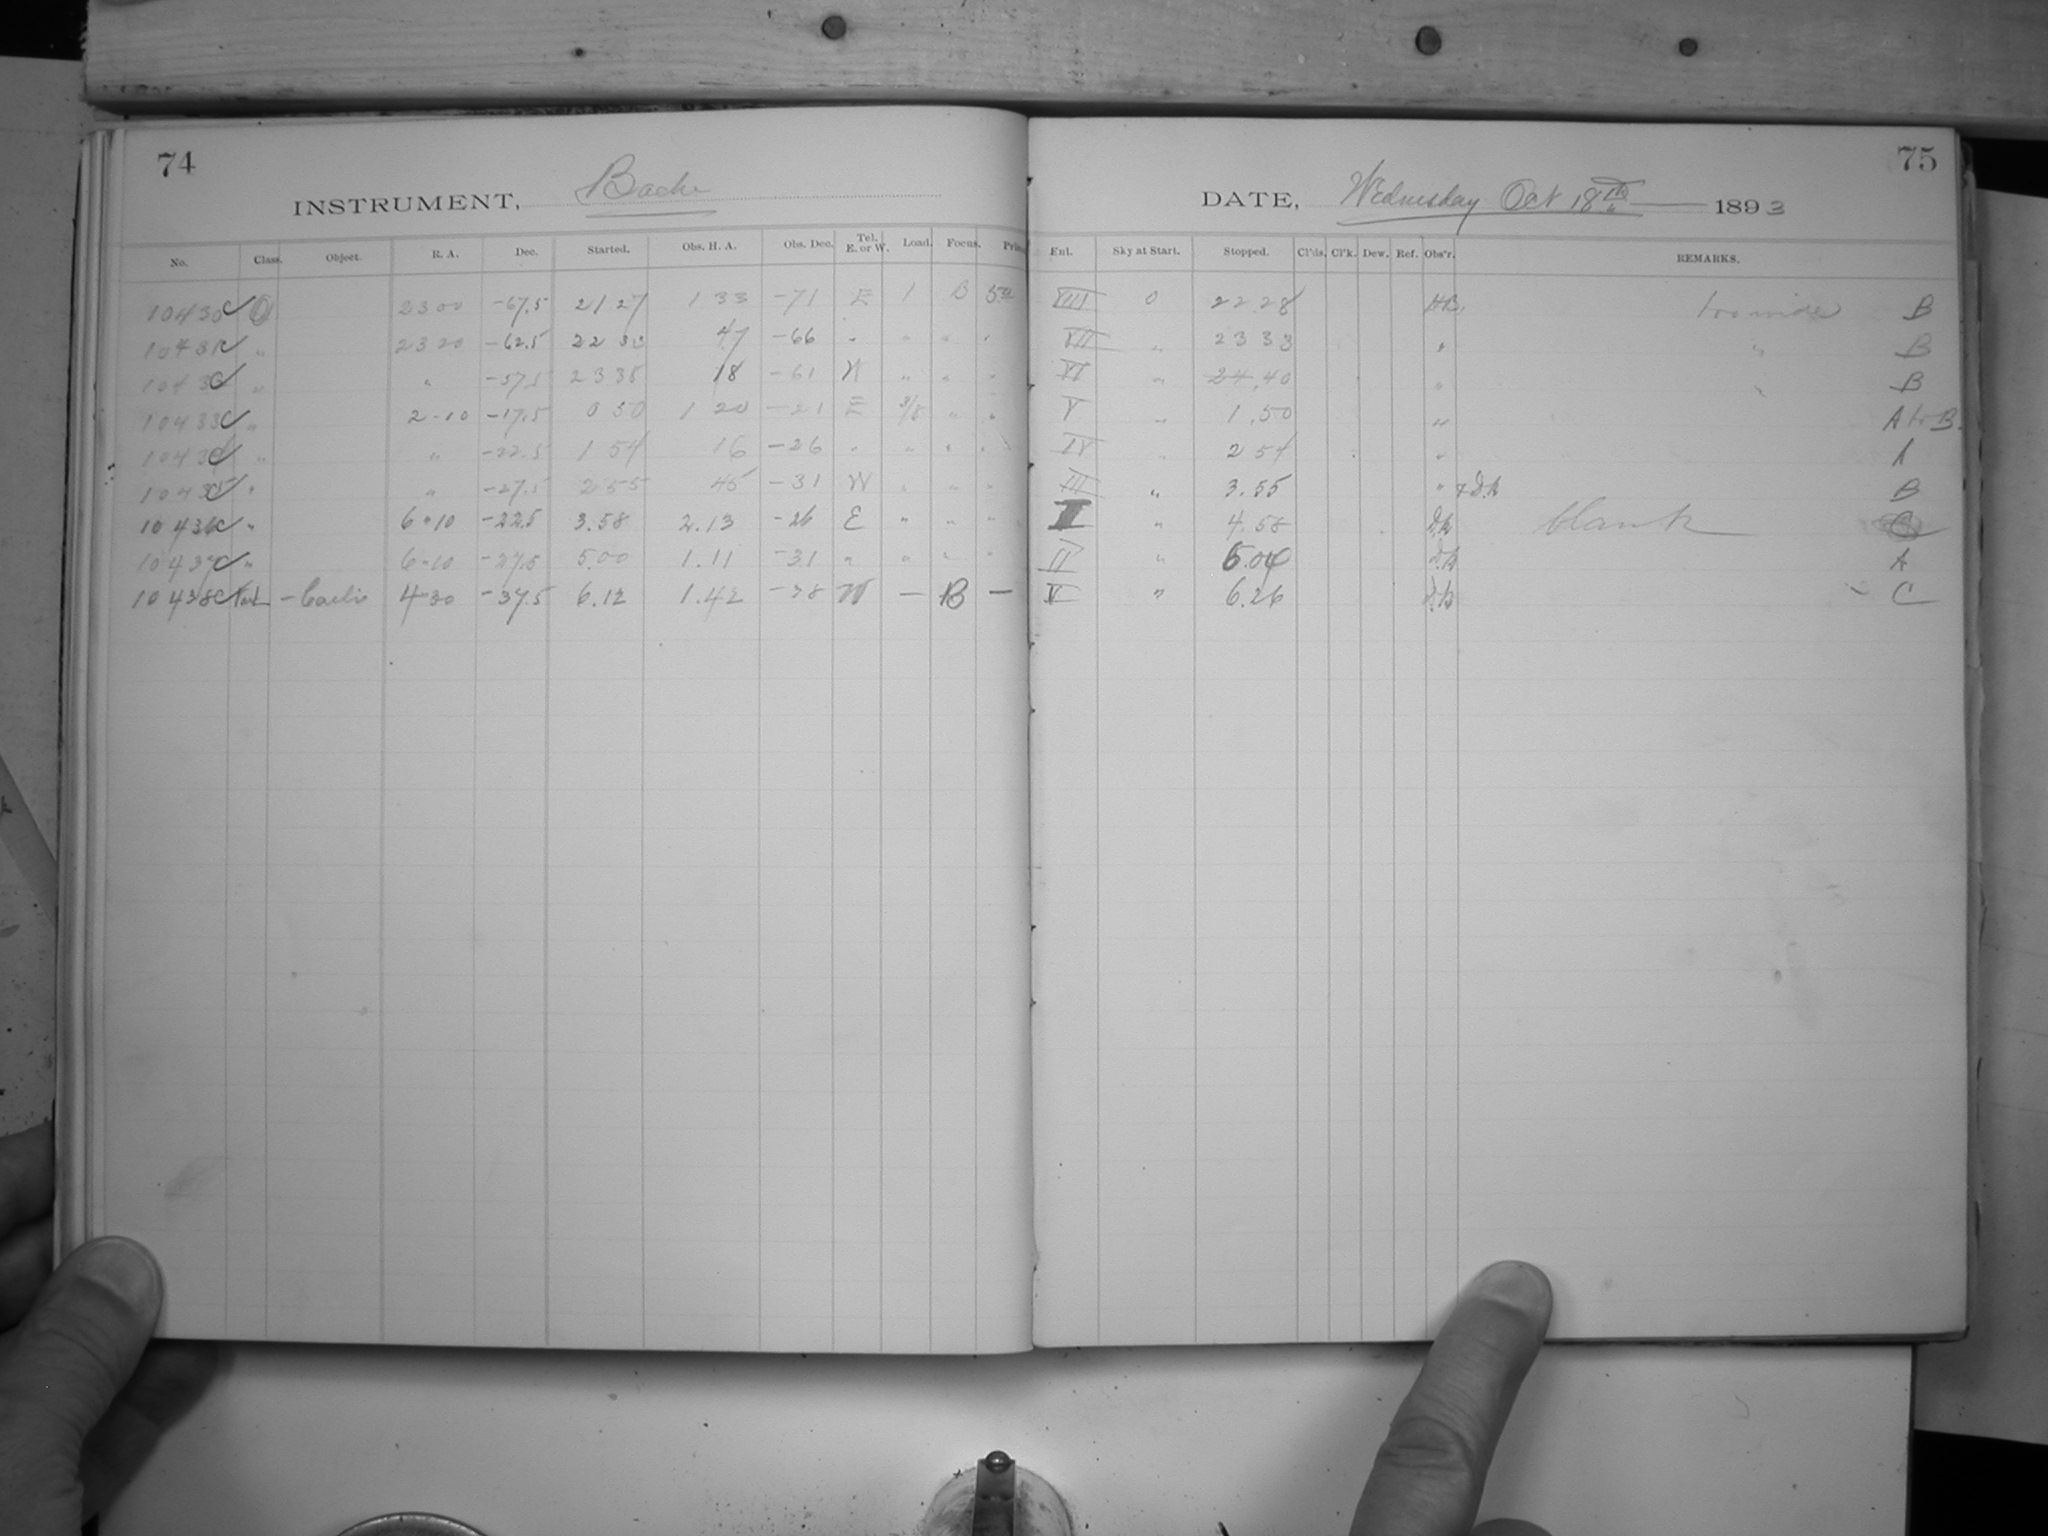 74 75
INSTRUMENT, Bache DATE, Wednesday Oct 18th 1893
No. Class. Object. R. A. Dec. Started. Obs. H. A. Obs. Dec. Tel. E. or W. Load. Focus. Enl. Sky at Start. Stopped. Cl'ds. Cl'k. Dew. Ref. Obs'r. REMARKS.
10430 C 23 00 -67.5 21 27 1 33 -71 E 1 B VIII 0 22 28 too wide B
10431 C " 23 20 -62.5 22 32 47 -66 " " " " VII " 23 33 " " B
10432 C " " -57.5 23 35 18 -61 W " " " VI " 24.40 " " B
10433 C " 2-10 -17.5 0 50 1 20 -21 E 3/8 " " V " 1.50 " A to B.
10434 C " " -22.5 1 54 16 -26 " " " " IV " 2 54 " A
10435 C " " -27.5 2 55 45 -31 W " " " III " 3.55 " B
10436 C " 6-10 -22.5 3.58 2.13 -26 E " " " I " 4.58 blank C
10437 C " 6-10 -27.5 5.00 1.11 -31 " " " " II " 6.04 A
10438 C 4-30 -37.5 6.12 1.42 -38 W — B — V " 6.26 C